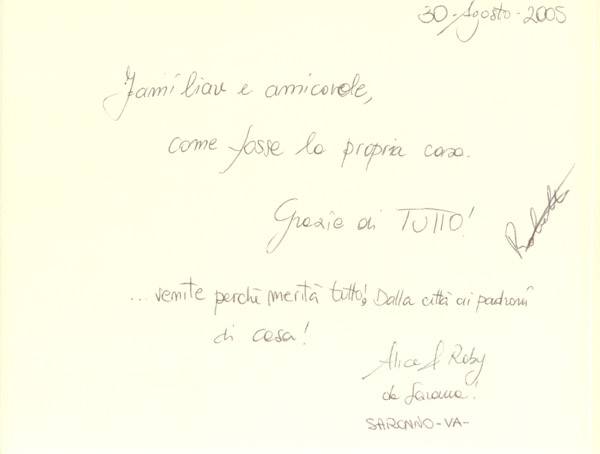 30-Agosto-2005
Familiare e amicovele,
come fosse la propria casa.
Grazie di TUTTO!
Roberta
... venite perchè merita tutto! Dalla città ai padroni
di casa!
Alice & Roby
da Saronno!
SARONNO-VA-